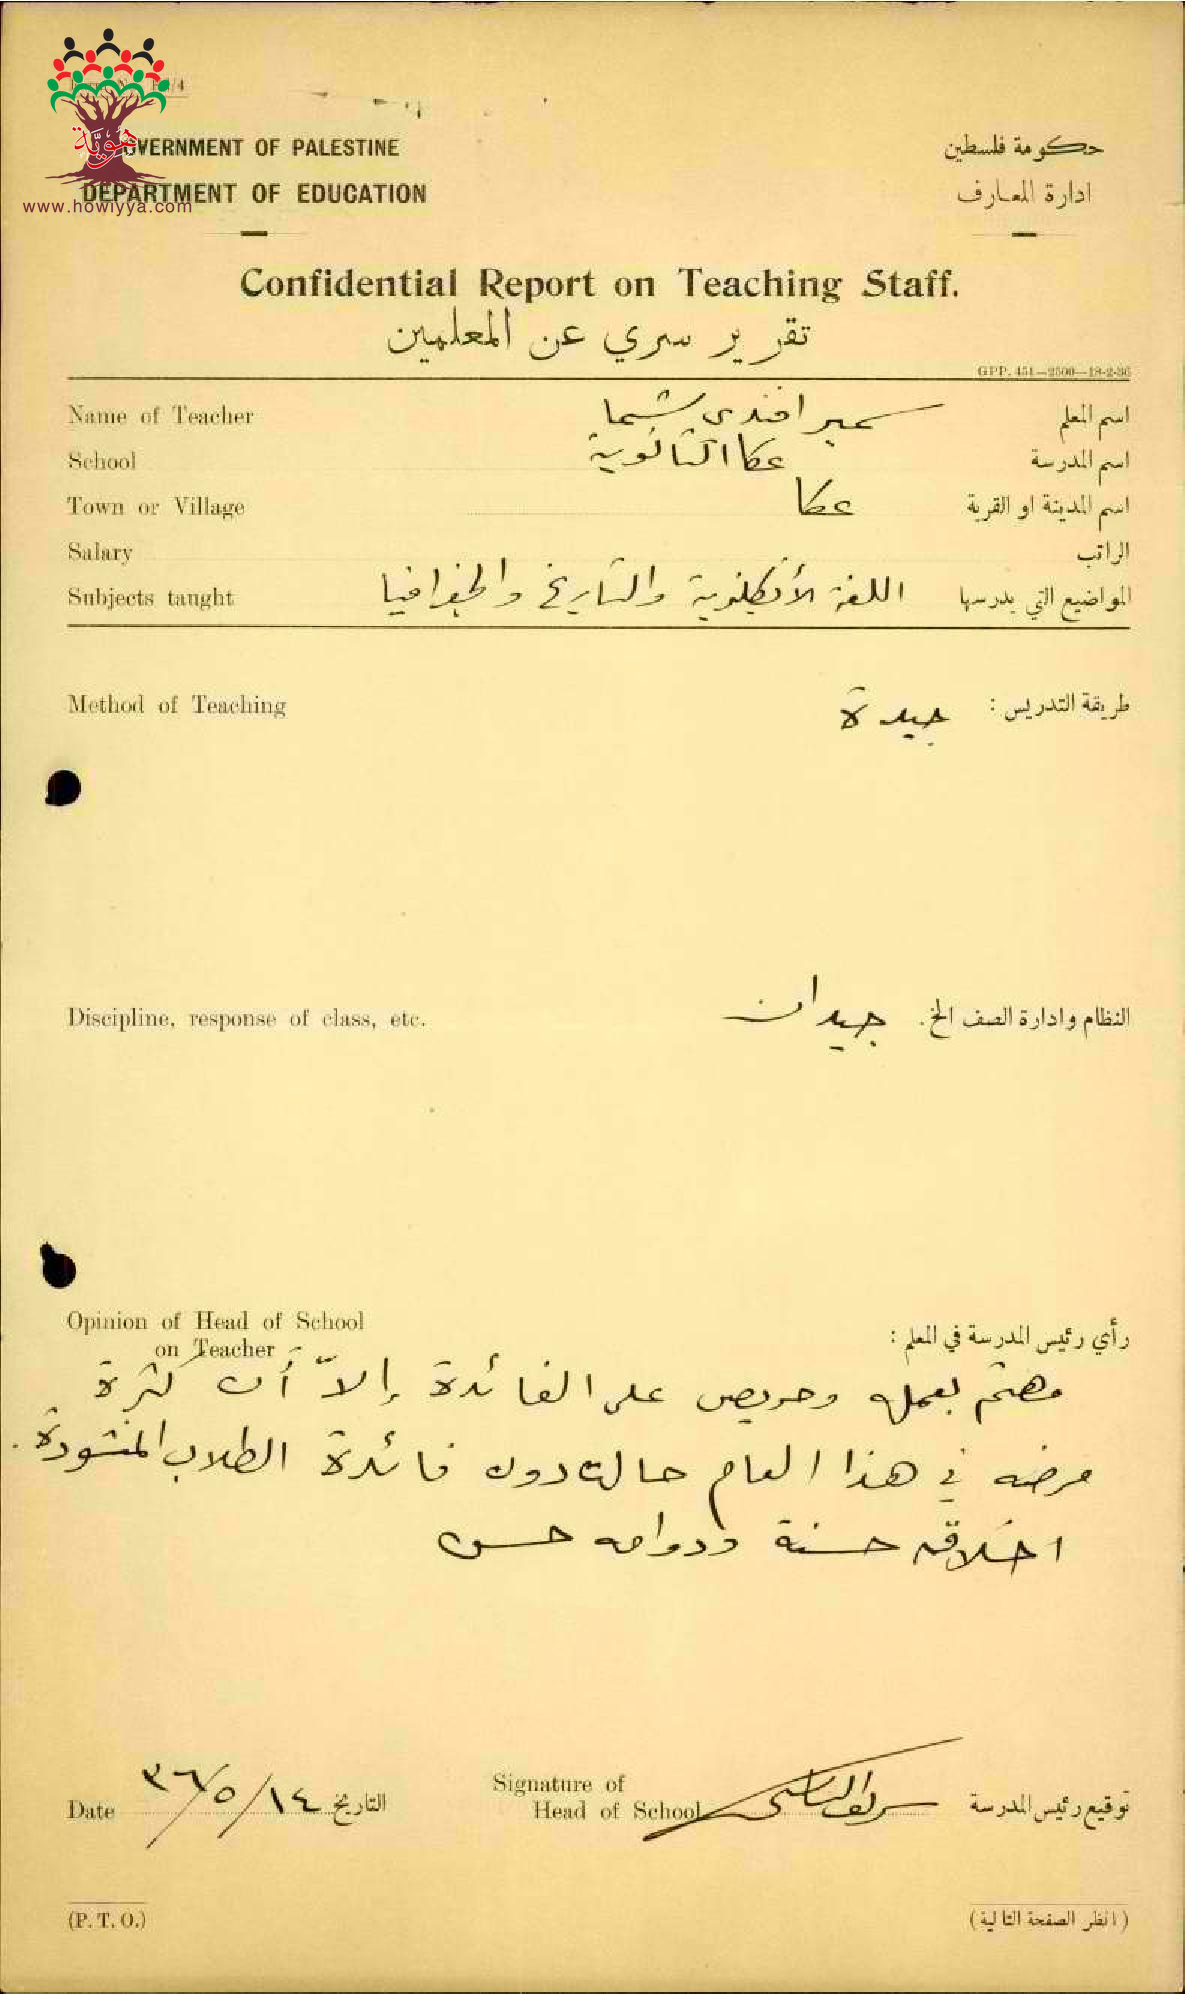 هوية
www.howiyya.com
/4
GOVERNMENT OF PALESTINE
حكومة فلسطين
DEPARTMENT OF EDUCATION
ادارة المعارف
Confidential Report on Teaching Staff.
تقرير سري عن المعلمين
GPP. 451—2500—18-2-36
Name of Teacher سمير افندي شما اسم المعلم
School عكا الثانوية اسم المدرسة
Town or Village عكا اسم المدينة او القرية
Salary الراتب
Subjects taught اللغة الأنكليزية والتاريخ والجغرافيا المواضيع التي يدرسها
Method of Teaching جيدة طريقة التدريس :
Discipline, response of class, etc. جيدان النظام وادارة الصف الخ.
Opinion of Head of School
on Teacher
رأي رئيس المدرسة في المعلم :
مهتم بعمله وحريص على الفائدة إلاّ أن كثرة
مرضه في هذا العام حالت دون فائدة الطلاب المنشودة.
اخلاقه حسنة ودوامه حسن
Date ١٤/٥/٣٦ التاريخ
Signature of
Head of School
توقيع رئيس المدرسة
(P. T. O.)
(انظر الصفحة التالية)